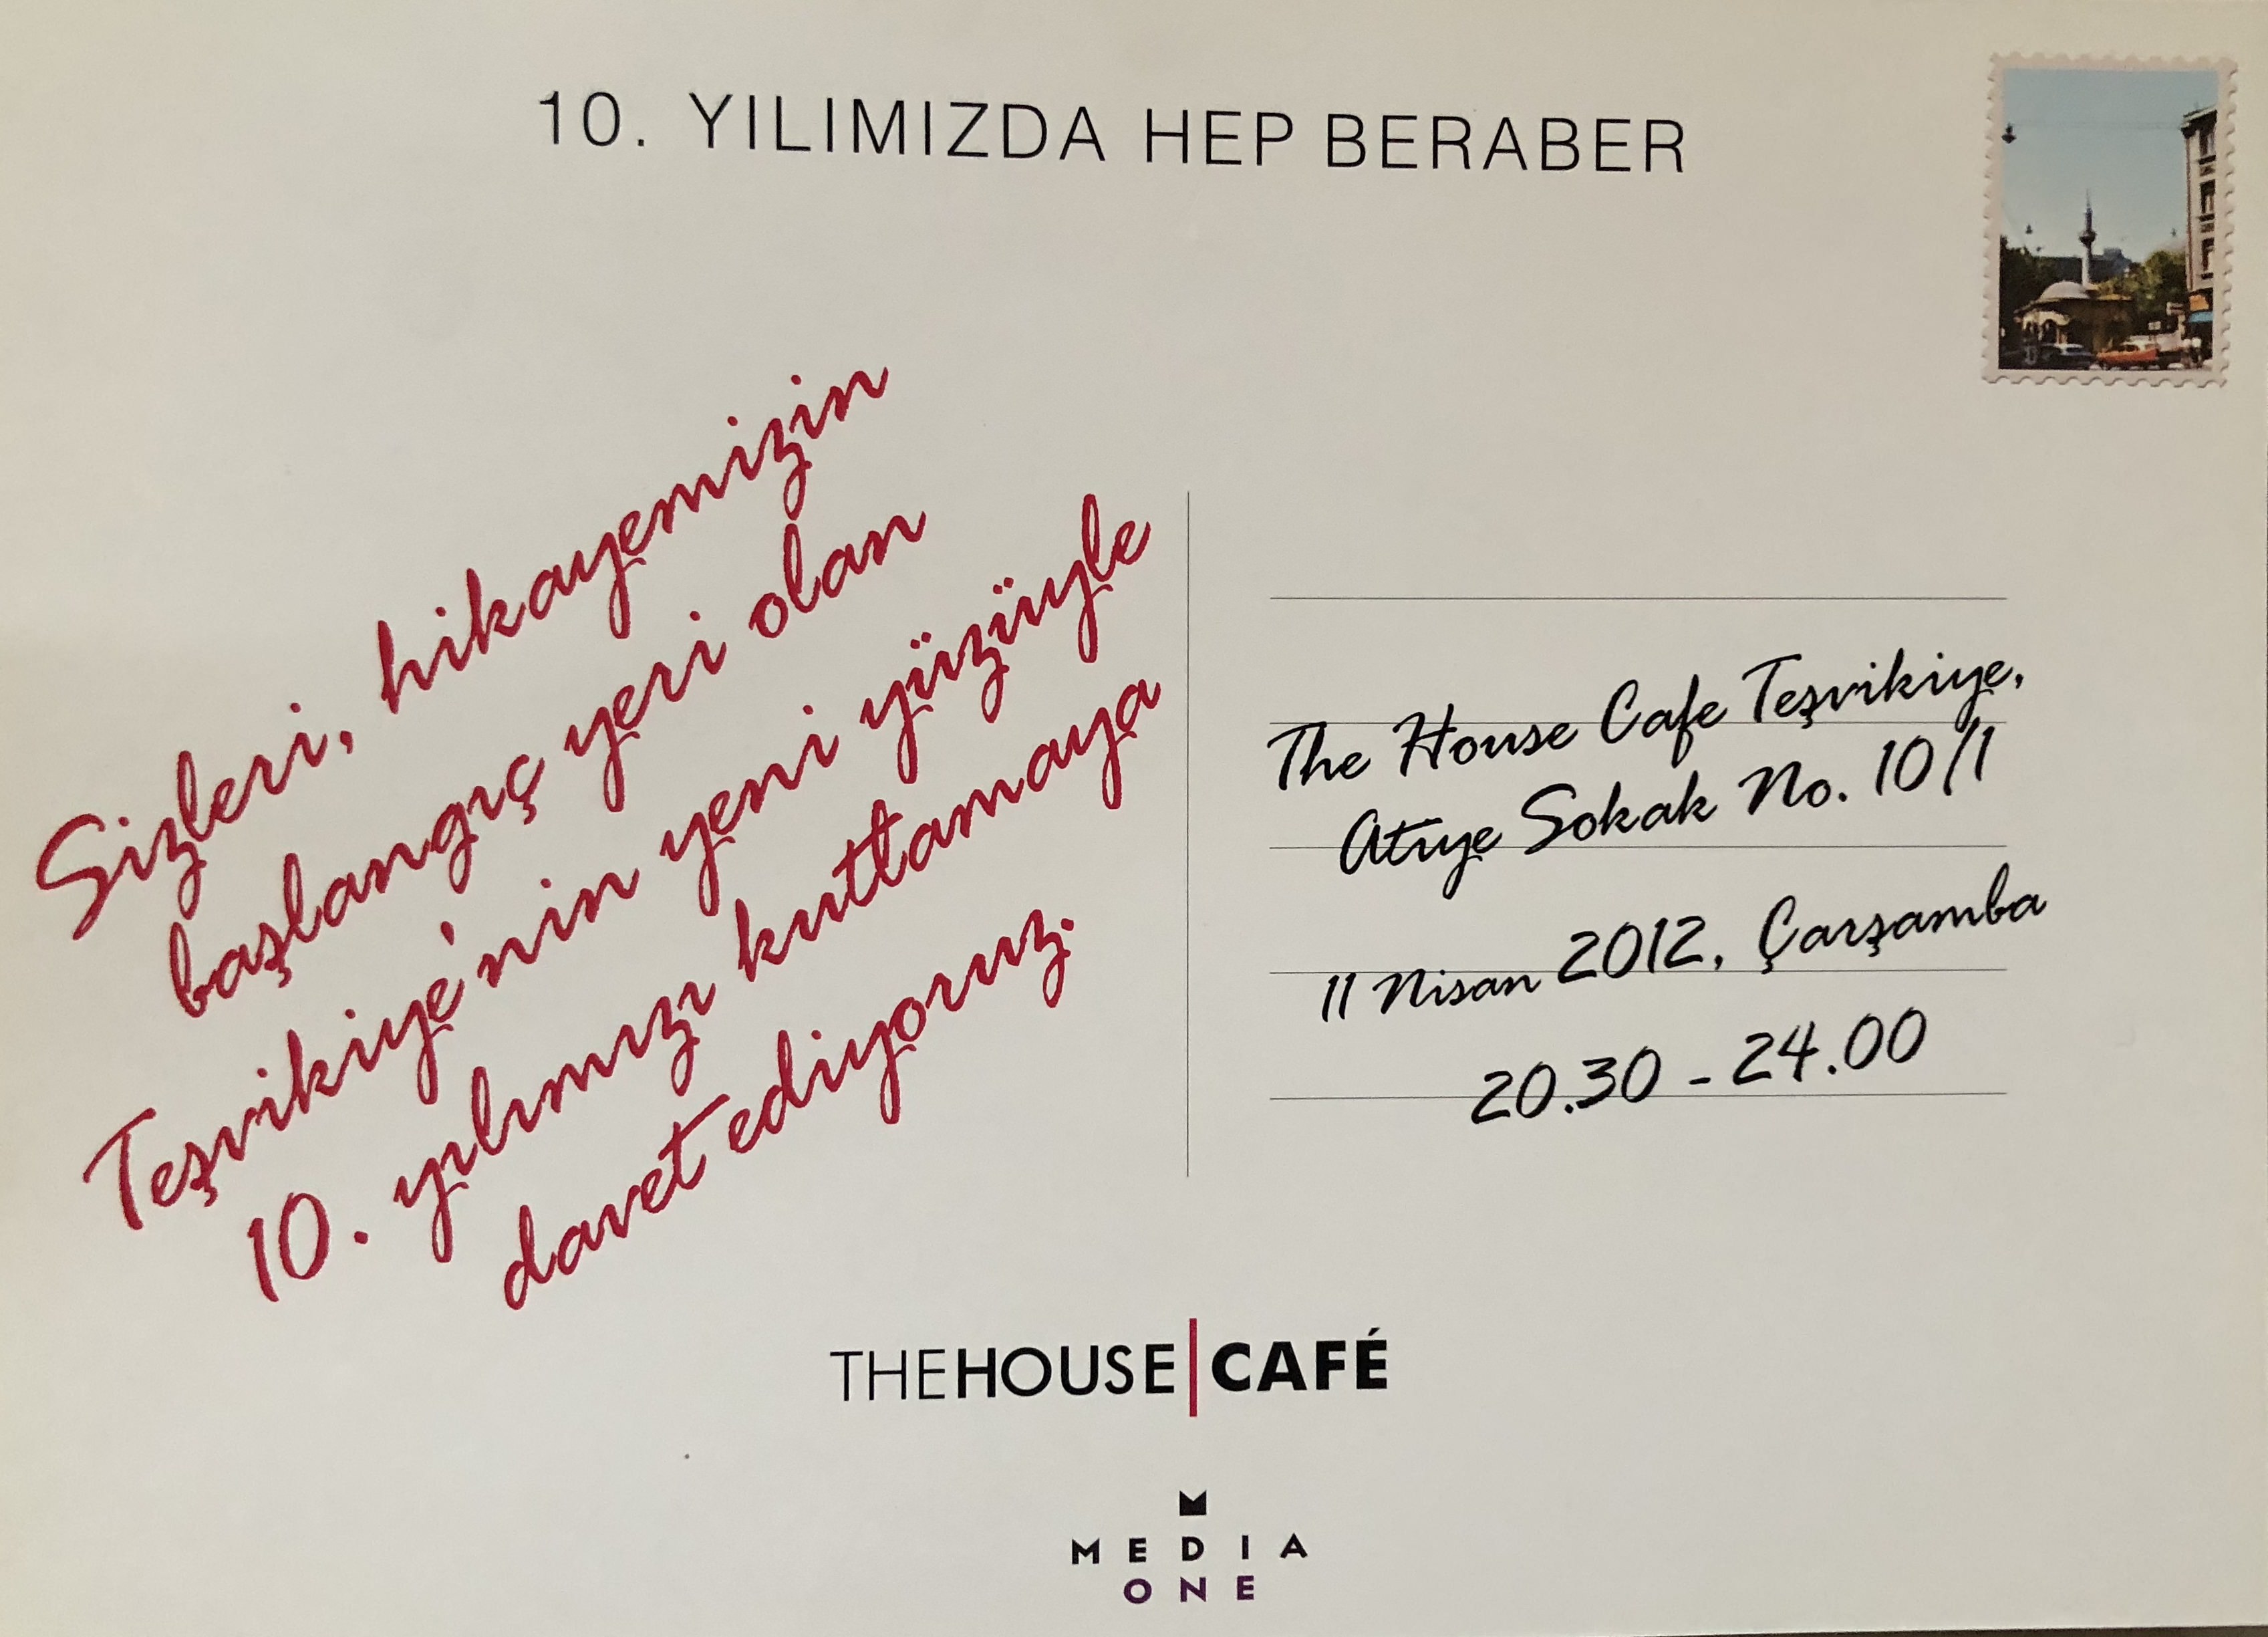 10. YILIMIZDA HEP BERABER
Sizleri, hikayemizin
başlangıç yeri olan
Teşvikiye'nin yeni yüzüyle
10. yılımızı kutlamaya
davet ediyoruz.
The House Cafe Teşvikiye,
Atiye Sokak No. 10/1
11 Nisan 2012, Çarşamba
20.30 - 24.00
THEHOUSE|CAFÉ
MEDIA
ONE